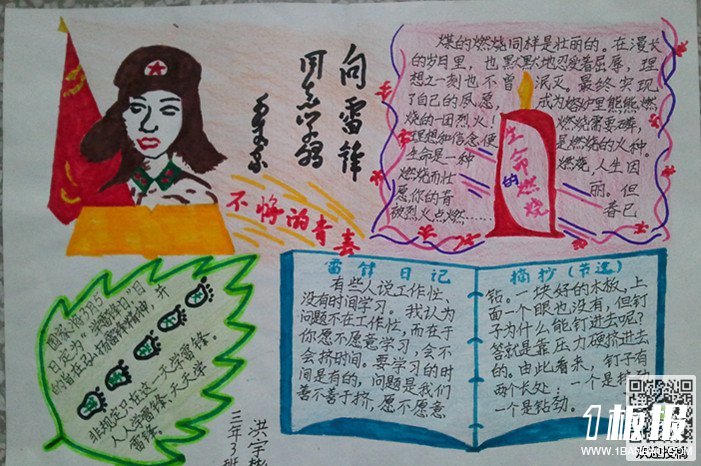 向雷锋
同志学习
毛泽东
不悔的青春
煤的燃烧同样是壮丽的。在漫长
的岁月里，也默默地忍受着屈辱，理
想之一刻也不曾泯灭。最终实现
了自己的夙愿，成为熔炉里能熊燃
烧的一团烈火！燃烧需要磷，
理想和信念便是燃烧的火种。
生命是一种燃烧，人生因
燃烧而壮丽。但
愿你的青春已
被烈火点燃……
生命的燃烧
国家把3月5
日定为"学雷锋日"目
的旨在弘扬雷锋精神，并
非规定只在这一天学雷锋。
人人学雷锋，天天学
雷锋。
三年3班
洪宇彬
雷锋日记
有些人说工作忙、
没有时间学习。我认为
问题不在工作忙，而在于
你愿不愿意学习，会不
会挤时间。要学习的时
间是有的，问题是我们
善不善于挤，愿不愿意
摘抄（节选）
钻。一块好的木板，上
面一个眼也没有，但钉
子为什么能钉进去呢？
答就是靠压力硬挤进去
的。由此看来，钉子有
两个长处：一个是挤劲
一个是钻劲。
1板报
WWW.1BANBAO.COM
欢迎投稿